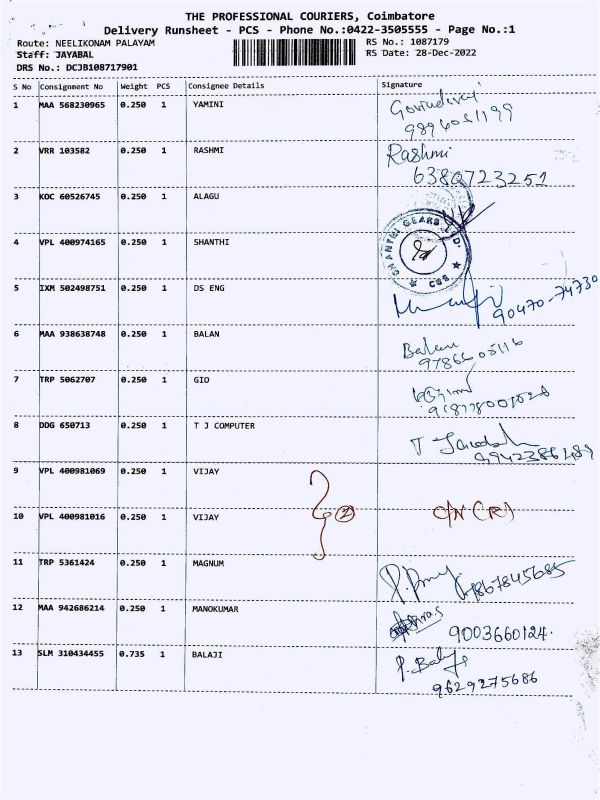 THE PROFESSIONAL COURIERS, Coimbatore
Delivery Runsheet - PCS - Phone No.:0422-3505555 - Page No.:1
Route: NEELIKONAM PALAYAM
RS No.: 1087179
Staff: JAYABAL
RS Date: 28-Dec-2022
DRS No.: DCJB108717901
S No Consignment No Weight PCS Consignee Details Signature
1 MAA 568230965 0.250 1 YAMINI
2 VRR 103582 0.250 1 RASHMI Rashmi
6380723251
3 KOC 60526745 0.250 1 ALAGU
4 VPL 400974165 0.250 1 SHANTHI
SHANTHI GEARS LTD. CBE
5 IXM 502498751 0.250 1 DS ENG
90470-74730
6 MAA 938638748 0.250 1 BALAN
7 TRP 5062707 0.250 1 GIO
8 DDG 650713 0.250 1 T J COMPUTER
9 VPL 400981069 0.250 1 VIJAY
10 VPL 400981016 0.250 1 VIJAY 2 C/N (R)
11 TRP 5361424 0.250 1 MAGNUM
12 MAA 942686214 0.250 1 MANOKUMAR
9003660124.
13 SLM 310434455 0.735 1 BALAJI P. Balaji
9629275686